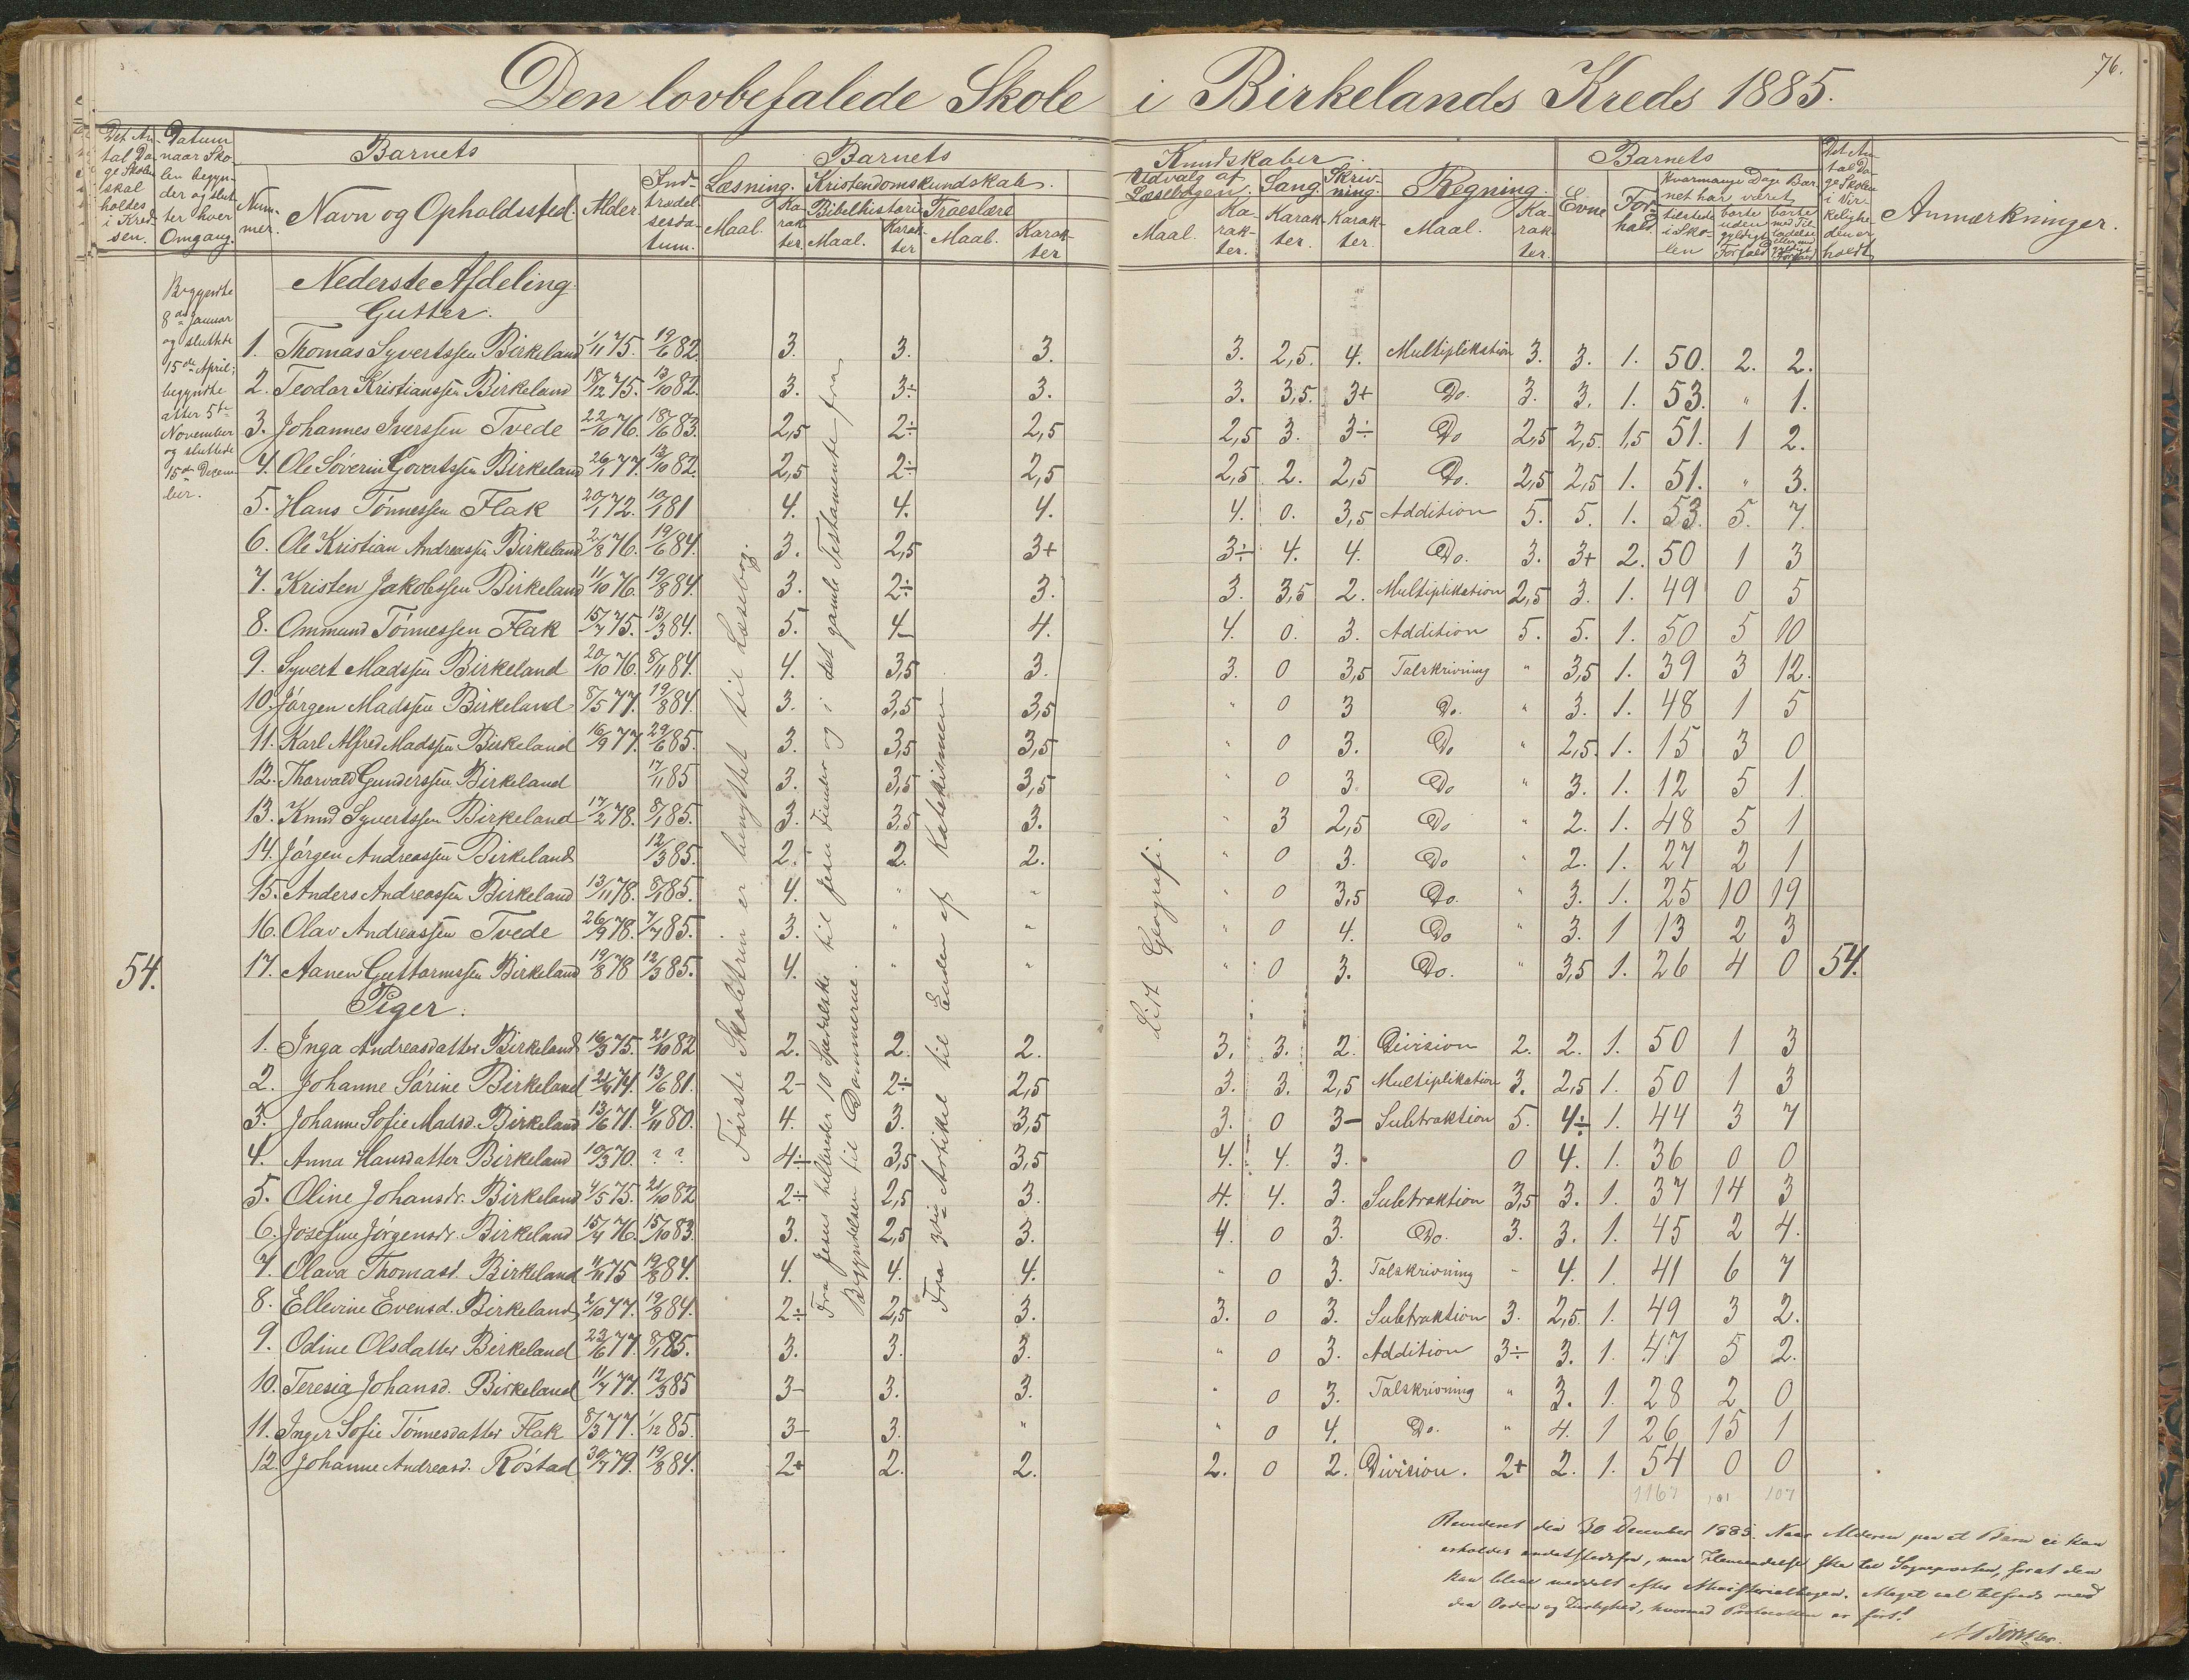 76.
Den lovbefalede Skole i Birkelands Kreds 1885.
Det Antal Dage Skolen skal holdes i Kredsen.
Datum naar Skolen begynder og slutter hver Omgang.
Barnets
Nummer.
Navn og Opholdssted.
Alder.
Indtrædelsesdatum.
Barnets Kundskaber
Læsning.
Maal.
Karakter.
Kristendomskundskab.
Bibelhistorie
Maal.
Karakter
Troeslære
Maal.
Karakter
Udvalg af Læsebogen.
Maal.
Karakter.
Sang.
Karakter.
Skrivning.
Karakter.
Regning.
Maal.
Karakter.
Barnets
Evne
Forhold
Hvormange Dage Barnet har været
tilstede i Skolen
borte uden gyldigt Forfald
borte m. Tilladelse eller m. gyldigt Forfald
Det Antal Dage Skolen i Virkeligheden er holdt
Anmærkninger.
Begyndte
8de Januar
og sluttede
15de April;
begyndte
atter 5te
November
og sluttede
15de Decem
ber.
Nederste Afdeling
Gutter.
1. Thomas Syvertssen Birkeland 1/11 75. 19/6 82. 3. 3. 3. 3. 2,5. 4. Multiplikation 3. 3. 1. 50. 2. 2.
2. Teodor Kristianssen Birkeland 18/12 75. 13/10 82. 3. 3÷ 3. 3. 3,5. 3+ Do. 3. 3. 1. 53. " 1.
3. Johannes Iverssen Tvede 22/10 76. 18/6 83. 2,5 2÷ 2,5 2,5 3. 3÷ Do 2,5 2,5. 1,5 51. 1 2.
4. Ole Søverin Govertssen Birkeland 26/1 77. 13/10 82. 2,5 2÷ 2,5 2,5 2. 2,5 Do. 2,5 2,5 1. 51. " 3.
5. Hans Tønnessen Flak 20/1 72. 10/1 81 4. 4. 4. 4. 0. 3,5 Addition 5. 5. 1. 53. 5. 7.
6. Ole Kristian Andreassen Birkeland 2/8 76. 19/6 84. 3. 2,5 3+ 3÷ 4. 4. Do. 3. 3+ 2. 50 1 3
7. Kristen Jakobssen Birkeland 11/10 76. 19/8 84. 3. 2÷ 3. 3. 3,5 2. Multiplikation 2,5 3. 1. 49 0 5
8. Ommund Tønnessen Flak 15/7 75. 13/3 84. 5. 4- 4. 4. 0. 3. Addition 5. 5. 1. 50 5 10
9. Syvert Madssen Birkeland 20/10 76. 8/11 84. 4. 3,5 3. 3. 0 3,5 Talskrivning " 3,5 1. 39 3 12.
10. Jørgen Madssen Birkeland 8/5 77. 19/8 84. 3. 3,5 3,5 " 0 3 Do. " 3. 1. 48 1 5
11. Karl Alfred Madssen Birkeland 16/9 77. 29/6 85. 3. 3,5 3,5 " 0 3. Do " 2,5. 1. 15 3 0
12. Thorvald Gunderssen Birkeland 17/11 85 3. 3,5 3,5 " 0 3 Do " 3. 1. 12 5 1
13. Knud Syvertssen Birkeland 17/2 78. 8/1 85. 3. 3,5 3. " 3 2,5 Do " 2. 1. 48 5 1
14. Jørgen Andreassen Birkeland 12/3 85. 2. 2. 2. " 0 3. Do " 2. 1. 27 2 1
15. Anders Andreassen Birkeland 13/11 78. 8/1 85. 4. " " " 0 3,5 Do. " 3. 1. 25 10 19
16. Olav Andreassen Tvede 26/9 78. 7/7 85. 3. " " " 0 4. Do " 3. 1 13 2 3
54. 17. Aanen Guttormssen Birkeland 19/8 78 12/3 85. 4. " " " 0 3. Do. " 3,5 1. 26 4 0 54.
Piger.
1. Inga Andreasdatter Birkeland 16/3 75. 21/10 82 2. 2. 2. 3. 3. 2. Division 2. 2. 1. 50 1 3
2. Johanne Sørine Birkeland 21/9 74. 13/6 81. 2- 2÷ 2,5 3. 3. 2,5 Multiplikation 3. 2,5 1. 50 1 3
3. Johanne Sofie Madsd. Birkeland 13/6 71. 4/11 80. 4. 3. 3,5 3. 0 3- Subtraktion 5. 4÷ 1. 44 3 7
4. Anna Hansdatter Birkeland 10/3 70. ? ? 4÷ 3,5 3,5 4. 4. 3. 0 4. 1. 36 0 0
5. Oline Johansdr. Birkeland 4/5 75. 21/10 82 2÷ 2,5 3. 4. 4. 3. Subtraktion 3,5 3. 1. 37 14 3
6. Josefine Jørgensdr. Birkeland 15/4 76. 15/10 83. 3. 2,5 3. 4. 0 3. Do. 3. 3. 1. 45 2 4.
7. Olava Thomasd. Birkeland 4/11 75 19/8 84. 4. 4. 4. " 0 3. Talskrivning " 4. 1. 41 6 7
8. Ellevine Evensd. Birkeland 2/10 77. 19/8 84. 2÷ 2,5 3. 3. 0 3. Subtraktion 3. 2,5. 1. 49 3 2.
9. Odine Olsdatter Birkeland 23/6 77. 8/1 85. 3. 3. 3. " 0 3. Addition 3÷ 3. 1. 47 5 2.
10. Teresia Johansd. Birkeland 11/7 77. 12/3 85 3- 3. 3. " 0 3. Talskrivning " 3. 1. 28 2 0
11. Inger Sofie Tønnesdatter Flak 8/3 77. 1/12 85. 3- 3. " " 0 4. Do. " 4. 1 26 15 1
12. Johanne Andreasd. Røstad 30/7 79. 19/8 84. 2+ 2. 2. 2. 0 2. Division. 2+ 2. 1. 54 0 0
1167 101 107
Første Skoletrin er benyttet til Læsebog.
Fra Jesus helbreder 10 Spedalske til Jesu Fiender og i det gamle Testamente fra
Begyndelsen til Dommerne.
Fra 3die Artikel til Enden af Katekismen
Lidt Geografi.
Revideret den 30 December 1885. Naar Alderen paa et Barn ei kan
erholdes andetstedsfra, maa Henvendelse ske til Sognepresten, forat den
kan blive meddelt efter Ministerialbogen. Meget vel tilfreds med
den Orden og Zirlighed, hvormed Protocollen er ført!